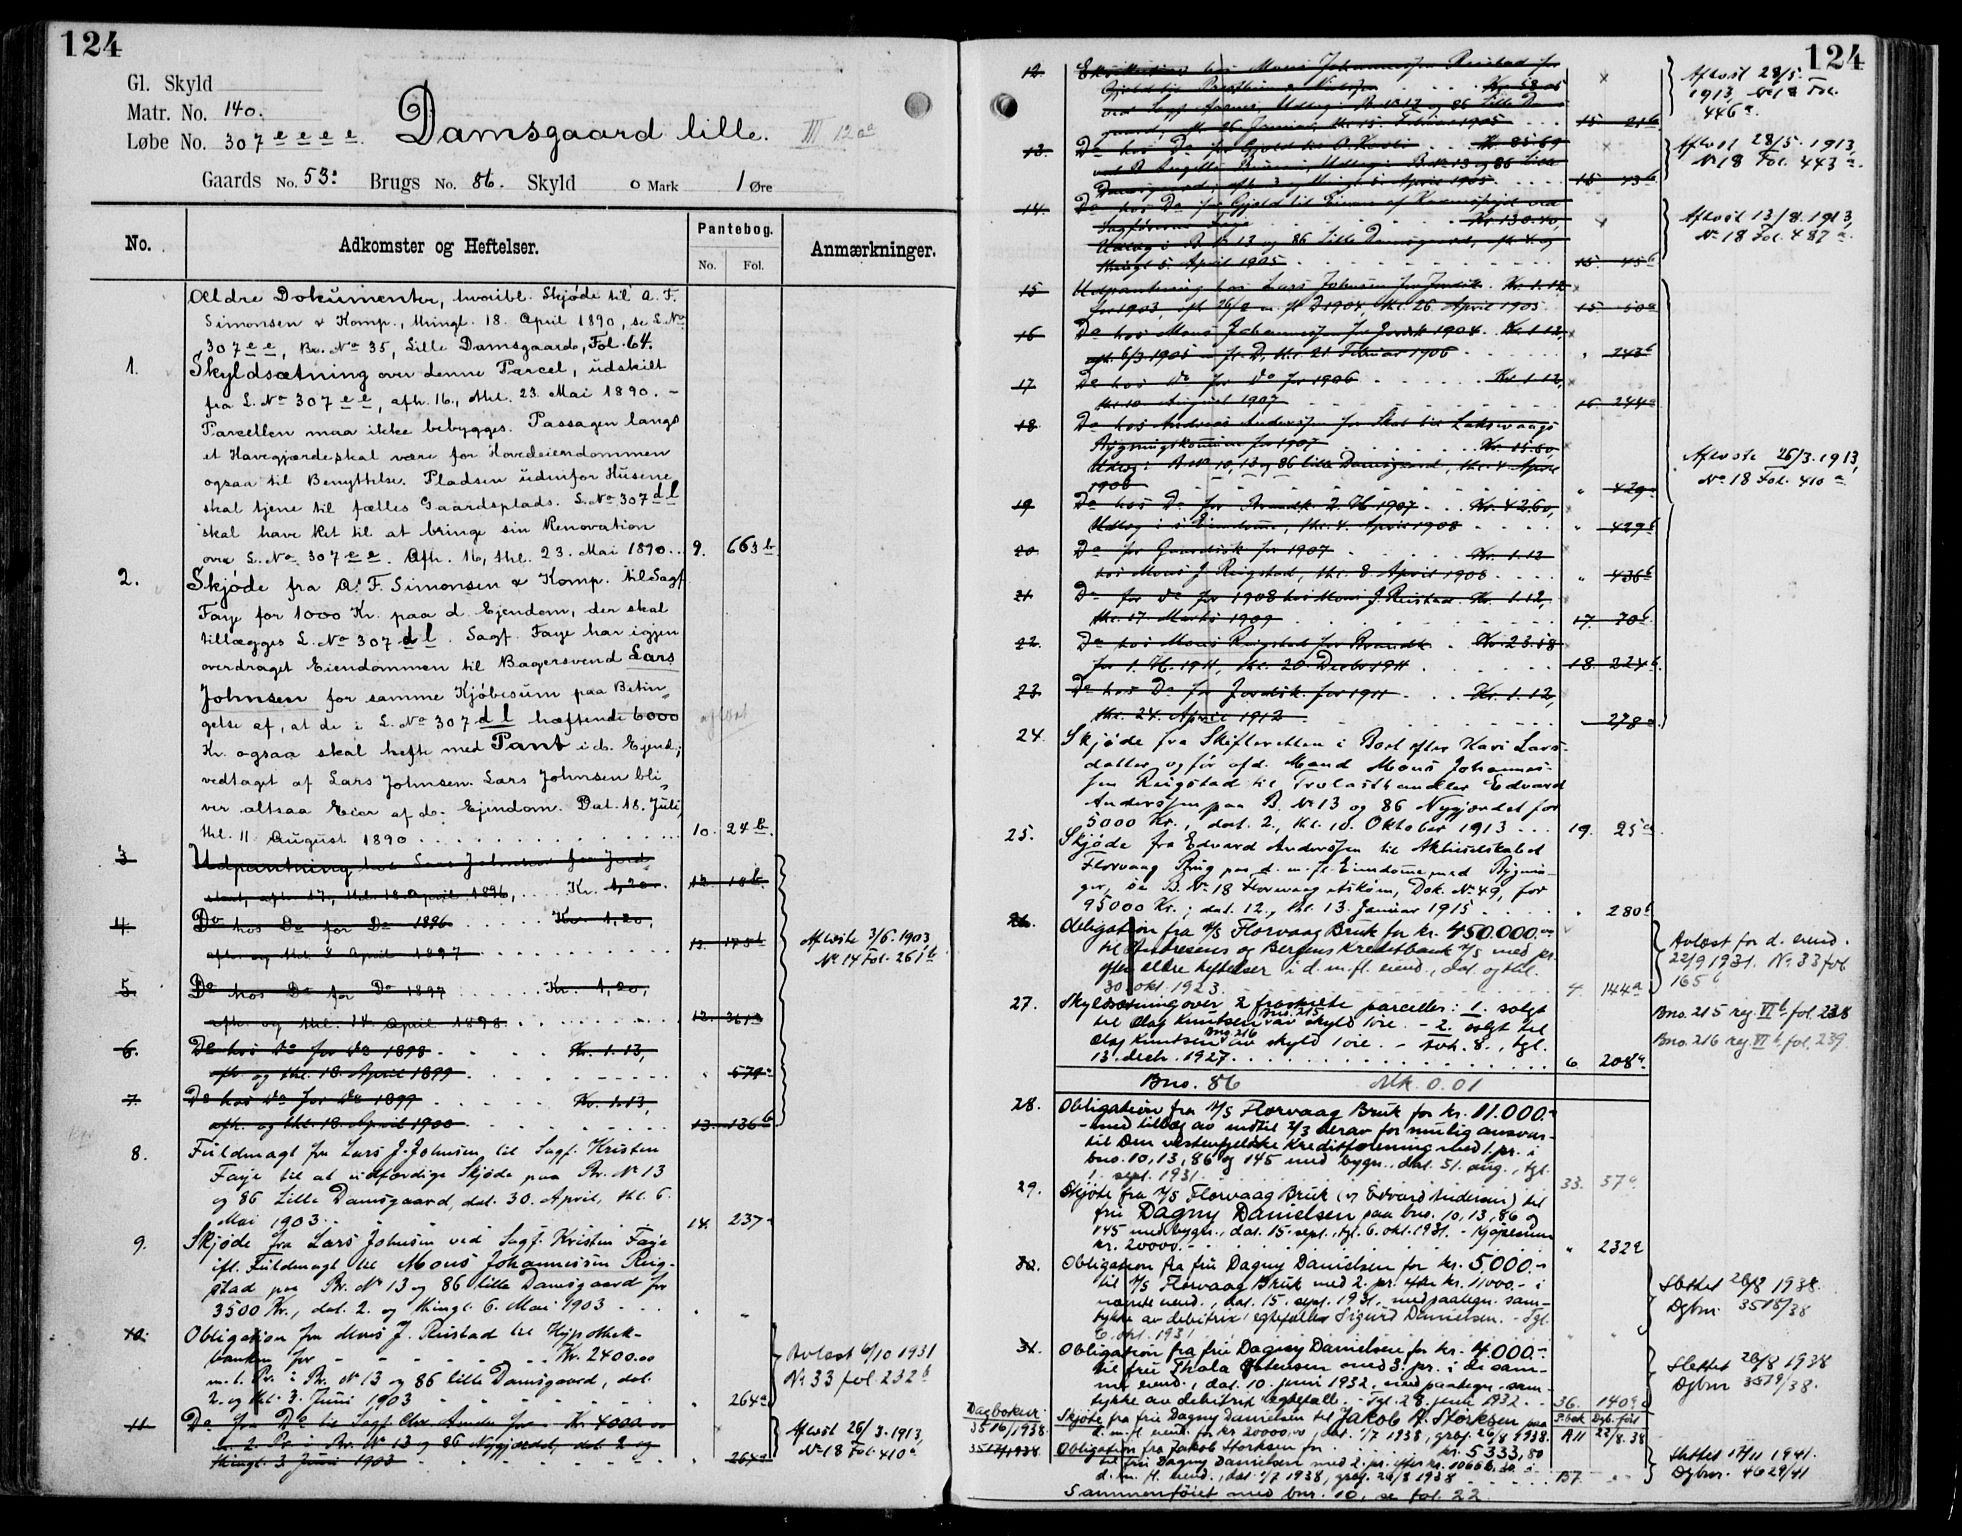 124
Gl. Skyld
Matr. No. 140.
Løbe No. 307 e e e e
Damsgaard lille. III 120a
Gaards No. 53. Brugs No. 86. Skyld 0 Mark 1 Øre
No. Adkomster og Heftelser. Pantebog. Anmærkninger.
No. Fol.
Ældre Dokumenter, hvoribl. Skjøde til A. F.
Simonsen & Komp., thingl. 18. April 1890, se L. No
307 e e, Br. No 35, Lille Damsgaard, Fol. 64.
1. Skyldsætning over denne Parcel, udskilt
fra L. No 307 e e, afh. 16., thl. 23. Mai 1890. –
Parcellen maa ikke bebygges. Passagen langs
et Havegjærde skal være for Hovedeiendommen
ogsaa til Benyttelse. Pladsen udenfor Husene
skal tjene til fælles Gaardsplads. L. No 307 d l
skal have Ret til at bringe sin Renovation
over L. No 307 e e. Afh. 16, thl. 23. Mai 1890... 9. 663 b
2. Skjøde fra A. F. Simonsen & Komp. til Sagf.
Faye for 1000 Kr. paa d. Ejendom, der skal
tillægges L. No 307 d l. Sagf. Faye har igjen
overdraget Eiendommen til Bagersvend Lars
Johnsen for samme Kjøbesum paa Betin-
gelse af, at de i L. No 307 d l hæftende 6000 afløst
Kr. ogsaa skal hefte med Pant i d. Ejend.,
vedtaget af Lars Johnsen. Lars Johnsen bli-
ver altsaa Eier af d. Ejendom. Dat. 18. Juli,
thl. 11 August 1890 . . . . 10. 24 b.
3 Udpantning hos Lars Johnsen for Jord-
skat, afh. 17, thl. 18. April 1896, ... Kr. 1,20. 12. 10 b.
4. Do hos Do for Do 1896 . . . . Kr. 1,20,
afh. og thl. 8 April 1897 . . . . 12. 175 b Aflöste 3/6. 1903,
No 14 Fol. 261 b.
5. Do hos Do for Do 1897 . . . . Kr. 1,20,
afh. og thl. 14. April 1898 . . . . 12. 361 a
6. Do hos Do for Do 1898 . . . . Kr. 1.13,
afh. og thl. 18. April 1899 . . . . " 579 a
7. Do hos Do for Do 1899 . . . . Kr. 1.13,
afh. og thl. 18. April 1900 . . . . 13. 136 b
8. Fuldmagt fra Lars J. Johnsen til Sagf. Kristen
Faye til at udfærdige Skjøde paa Br. No 13
og 86 Lille Damsgaard, dat. 30. April, thl. 6.
Mai 1903. . . . . 14. 237 a
9. Skjøde fra Lars Johnsen ved Sagf. Kristen Faye
ifl. Fuldmagt til Mons Johannessen Ring-
stad paa Br. No 13 og 86 lille Damsgaard for
3500 Kr., dat. 2. og thingl. 6. Mai 1903 . . . " "
10. Obligation fra Mons J. Reistad til Hypothek-
banken for . . . . Kr. 2400.00 Avløst 6/10 1931
m. 1. Pr. i Br. No 13 og 86 lille Damsgaard, dat. No 33 fol. 232 b
2. og thl. 3. Juni 1903 . . . . " 264 a
11. Do fra Do til Sagf. Chr. Andersen for Kr. 4000.00 Afløst 26/3. 1913,
m. 2. Pr. i Br. No 13 og 86 Nygjærdet, dat. 2 og No 18 Fol. 410 a
thingl. 3. Juni 1903 . . . . " 264 a
124
12. Exekution hos Mons Johannessen Reistad for
Kr. 58.05
15. 21 b
Afløst 28/5.
1913, No 18 Fol.
446 a.
13. Do hos Do for Gjæld til O. Kr. 85.69
15. 43 b
Afløst 28/5. 1913,
No 18 Fol. 443 a.
14. Do hos Do for Gjæld til Kr. 130.40,
Udlæg i B. No 13 og 86 Lille Damsgaard, afh. 4. og
thingl. 5. April 1905 . . . . 15. 45 b
Afløst 13/8. 1913,
No 18 Fol. 487 a.
15 Udpantning hos Lars Johnsen for Jordsk. Kr. 1.12
for 1903 thl. 26 April 1905 15. 50 a
16 Do hos Mons Johannessen for Jordsk. 1904. Kr. 1.12,
afh. 6/3 1905 thl. 21 Februar 1906 . . . . " 243 b
17 Do hos do for do for 1906 . . . . Kr. 1.12,
thl. 10 August 1907 . . . . 16. 244 a
18. Do hos Andreas Andersen for Skat til Laksevaags
Bygningskommun for 1907 . . . . Kr. 15.60,
Udlæg i B No 10, 13 og 86 lille Damsgaard, thl. 4. April
1908 . . . . " 429 a
Afløste 26/3. 1913,
No 18 Fol. 410 a
19 Do hos Do for Brandk. 2. H. 1907 . . . Kr. 42.60,
Udlæg i s. Eiendomme, thl. 4. April 1908 . . . . " 429 b
20 Do for Grundsk. for 1907 . . . . Kr. 1.12
hos Mons J. Ringstad, thl. 8. April 1908 . . . . " 436 b
21. Do for do for 1908 hos Mons J. Reistad. Kr. 1.12,
thl. 17 Marts 1909 . . . . 17. 70 b
22. Do hos Mons Ringstad for Brandk. . Kr. 23.58
for 1. H. 1911, thl. 20. Decbr 1911 . . . . 18. 224 b
23. Do hos Do for Jordsk. for 1911 . . . Kr. 1.12,
thl. 24. April 1912 . . . . 278 a
24. Skjøde fra Skifteretten i Boet efter Kari Lars-
datter og før afd. Mand Mons Johannes-
sen Ringstad til Trælasthandler Edvard
Andersen paa B. No 13 og 86 Nygjærdet for
5000 Kr., dat. 2., thl. 10. Oktober 1913 ... 19. 25 a
25. Skjøde fra Edvard Andersen til Aktieselskabet
Florvaag Brug paa d. m. fl. Eiendomme med Bygnin-
ger, se B. No 18 Florvaag Askøen, Dok. No 49, for
95000 Kr., dat. 12., thl. 13. Januar 1915 . . . . " 280 b
26. Obligation fra A/S Florvaag Bruk for kr. 450.000.00
til Andresens og Bergens Kreditbank A/S med pr.
efter eldre heftelser i d. m. fl. eiend., dat. og thl.
30 okt. 1923 . . . . 4. 144 a
Avløst for d. eiend.
22/9 1931. No 33 fol.
165 b
27. Skyldsætning over 2 fraskilte parceller: 1. solgt
til Olaf Knutsen Bno. 215 av skyld 1 øre. – 2. solgt til
Olaf Knutsen Bno. 216 av skyld 1 øre. – avh. 8., tgl.
13. decbr. 1927. . . . . 6. 208 a.
Bno. 215 reg. VI b fol. 238
Bno. 216 reg. VI b. fol. 239
Bno. 86 Mk. 0.01
28. Obligation fra A/S Florvaag Bruk for kr. 11.000.–
– med tillæg av indtil 2/3 derav for mulig ansvar –
til Den vestenfjelske Kreditforening med 1. pr. i
bno. 10, 13, 86 og 145 med bygn., dat. 31. aug., tgl.
1. sept. 1931 . . . . 33. 57 a
29. Skjøte fra A/S Florvaag Bruk (og Edvard Andersen) til
frue Dagny Danielsen paa bno. 10, 13, 86 og
145 med bygn., dat. 15. sept., tgl. 6. okt. 1931. – Kjøpesum
kr. 20000.– . . . . " 232 a
30. Obligation fra fru Dagny Danielsen for kr. 5.000.–
til A/S Florvaag Bruk med 2. pr. efter kr. 11000.– i
nævnte eiend., dat. 15. sept. 1931, med paategn. sam-
tykke av debitrix' egtefælle Sigurd Danielsen. – Tgl.
6. okt. 1931 . . . . " "
Slettet 26/8 1938.
Dgbnr. 3518/38
31. Obligation fra fru Dagny Danielsen for kr. 4.000.–
til frue Thala med 3. pr. i de sam-
me eiend., dat. 10. juni 1932, med paategn. sam-
tykke av debitrix' egtefælle. – Tgl. 28. juni 1932 .. 36. 140 a
Slettet 26/8 1938
Dgbnr 3579/38.
Dagboknr.
3516/1938. Skjøte fra frue Dagny Danielsen til Jakob H. Størksen paa P.bok Dgb. ført
d. m. fl. eiend. for kr. 20000.00, dat. 1/7 1938, grbg. 26/8 1938. A11 22/8.38
3517/1938. Obligation fra Jakob Størksen for . . . kr. 5.333,80
til fru Dagny Danielsen med 2. pr. efter kr. 10666,20 i
d. m. fl. eiend., dat. 1/7 1938, grbg. 26/8 1938 . . . B7. "
Slettet 17/11 1941.
Dgbnr. 4629/41
Sammenføiet med bnr. 10, se fol. 22.